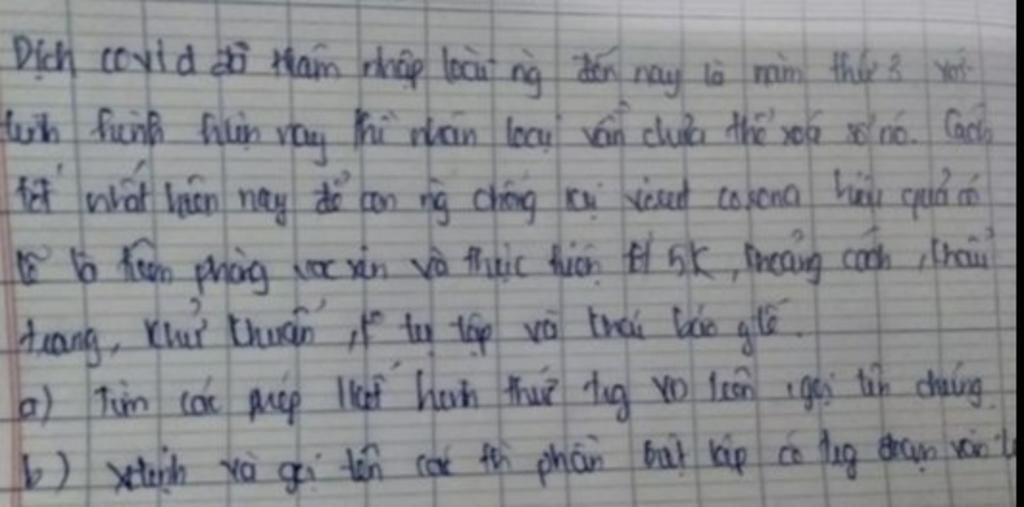 Dịch covid đã thâm nhập loài ng đến nay là năm thứ 3 với
tình hình hiện nay thì nhân loại vẫn chưa thể xoá sổ nó. Cách
tốt nhất hiện nay để con ng chống lại virut corona hiệu quả có
lẽ là tiêm phòng vac xin và thực hiện tốt 5K, khoảng cách, khẩu
trang, khử khuẩn, k tụ tập và khai báo y tế.
a) Tìm các phép liên kết hình thức trg vb trên, gọi tên chúng
b) xđịnh và gọi tên các th phần biệt lập có trg đoạn văn